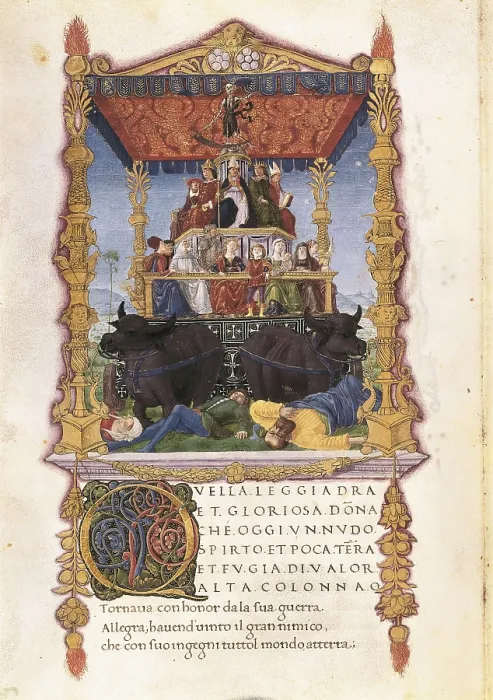 QVELLA.LEGGIADRA
ET.GLORIOSA.DŌNA
CHÉ.OGGI.VN.NVDO.
SPIRTO.ET.POCA.TĒRA
ET.FV.GIA.DI.VALOR.
ALTA.COLONNA.O
Tornaua con honor da la sua guerra.
Allegra, hauend'uinto il gran nimico,
che con suo ingegni tuttol mondo atterra.;